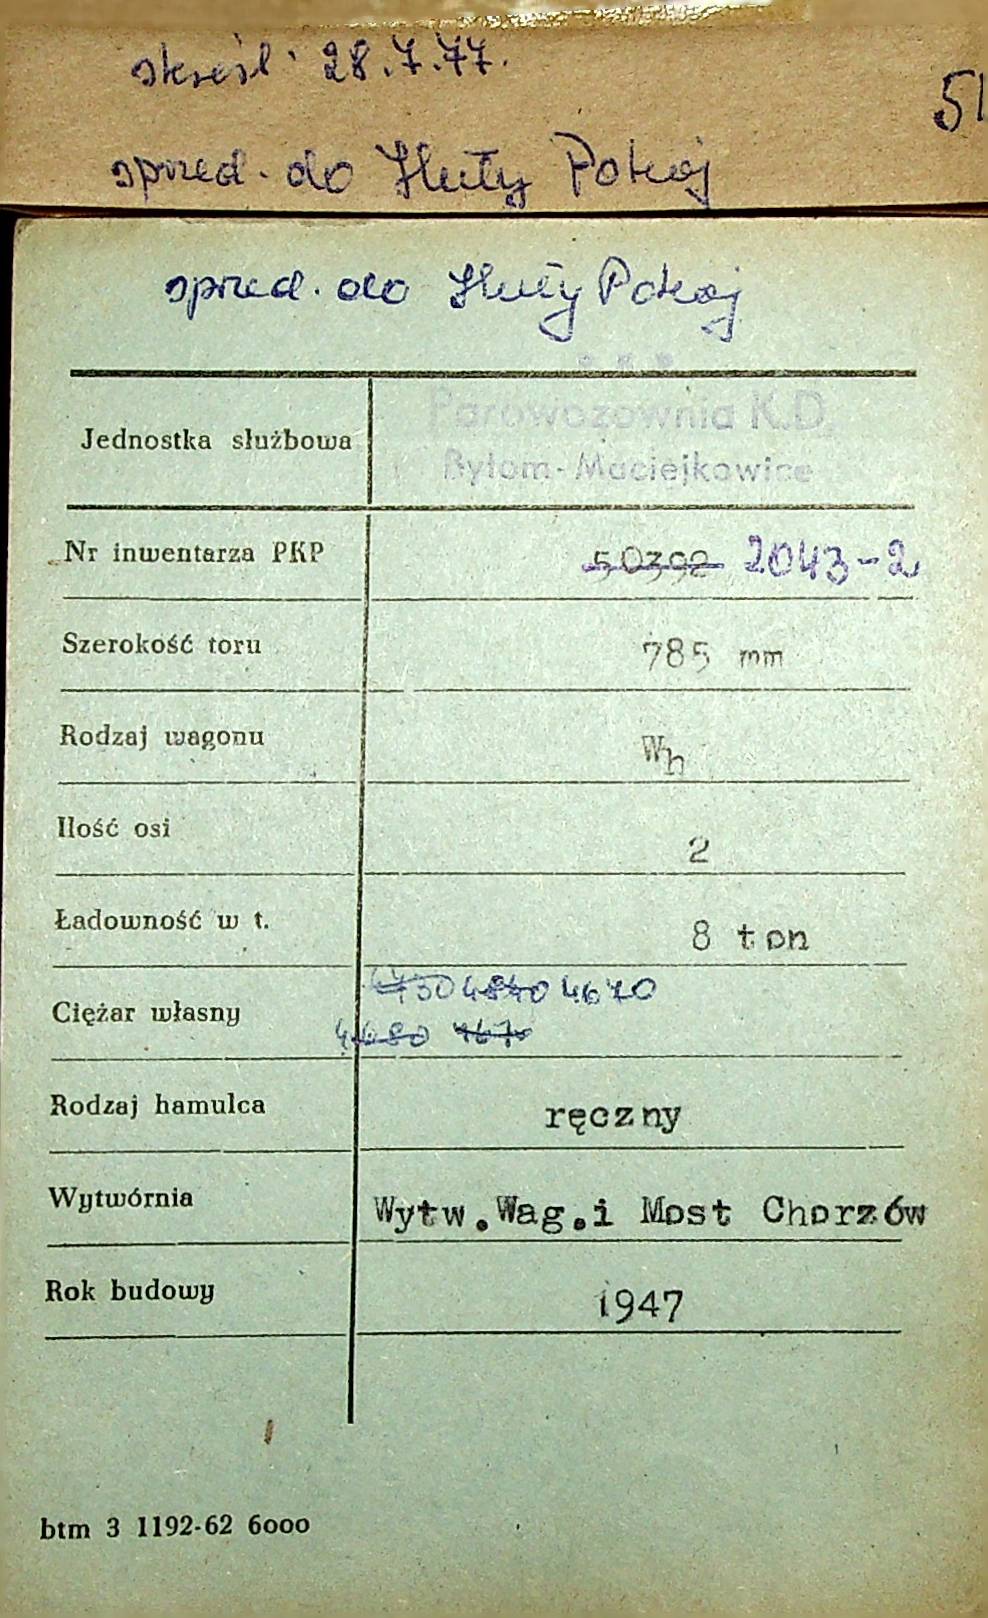 skreśl. 28.7.77.
51
sprzed. do Huty Pokój
sprzed. do Huty Pokój
P. K. P.
Jednostka służbowa Parowozownia K.D.
Bytom-Maciejkowice
Nr inwentarza PKP 50392 2043-2
Szerokość toru 785 mm
Rodzaj wagonu Wh
Ilość osi 2
Ładowność w t. 8 ton
4730 4840 4670
Ciężar własny
4.680 467
Rodzaj hamulca ręczny
Wytwórnia Wytw.Wag.i Most Chorzów
Rok budowy 1947
btm 3 1192-62 6000